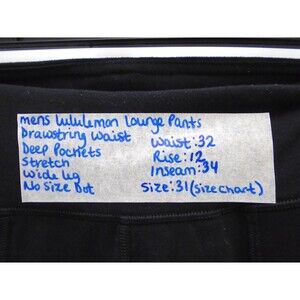 mens Lululemon Lounge Pants
Drawstring Waist
Deep Pockets
Stretch
Wide Leg
No Size Dot
Waist: 32
Rise: 12
Inseam: 34
Size: 31 (size chart)